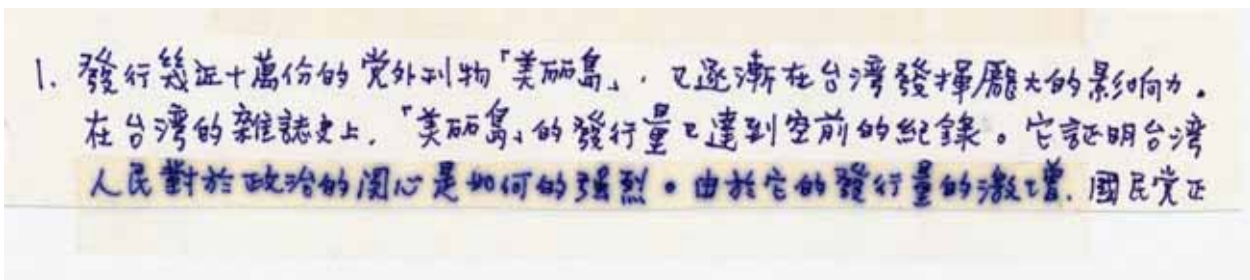 1. 發行幾近十萬份的党外刊物「美丽島」，已逐漸在台灣發揮龐大的影响力。
在台灣的雜誌史上，「美丽島」的發行量已達到空前的紀錄。它証明台湾
人民對於政治的関心是如何的强烈。由於它的發行量的激增，國民党正